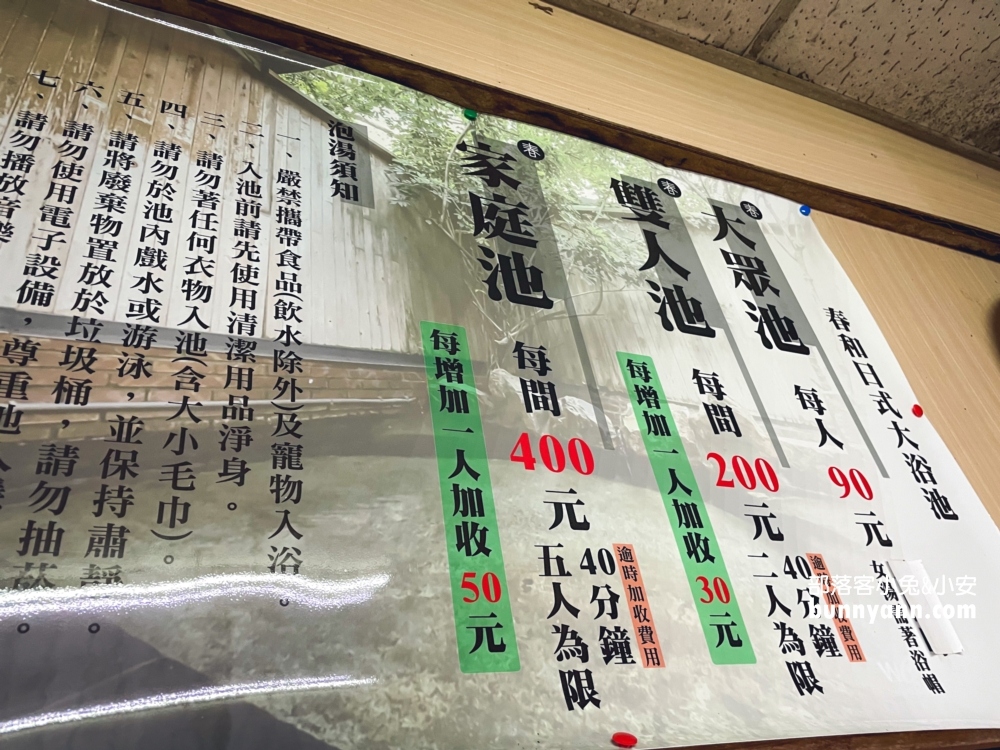 春和日式大浴池
春
大眾池
每人90元
著浴帽
春
雙人池
每間200元
40分鐘
二人為限
每增加一人加收30元
春
家庭池
每間400元
40分鐘
五人為限
逾時加收費用
每增加一人加收50元
泡湯須知
一、嚴禁攜帶食品(飲水除外)及寵物入浴。
二、入池前請先使用清潔用品淨身。
三、請勿著任何衣物入池(含大小毛巾)。
四、請勿於池內戲水或游泳，並保持肅靜。
五、請將廢棄物置放於垃圾桶，請勿抽菸。
六、請勿使用電子設備，尊重他人
七、請勿播放音樂
部落客小兔&小安
bunnyann.com